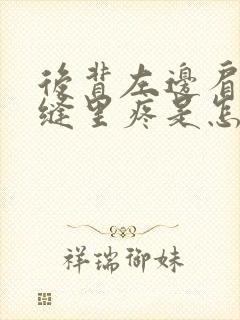 後背左邊肩
縫里疼是怎
祥瑞御妹